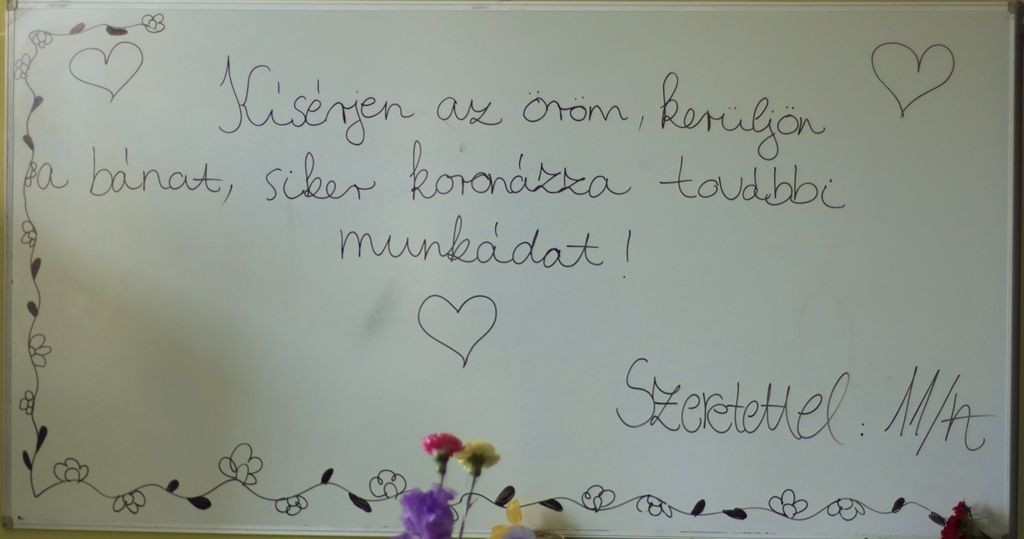 Kísérjen az öröm, kerüljön
a bánat, siker koronázza további
munkádat!
Szeretettel: 11/A